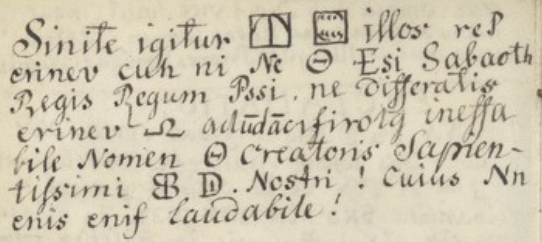 Sinite igitur illos res
erinev cun ni Ne Θ Esi Sabaoth
Regis Regum Pssi. ne differatis
erinev Ω
bile Nomen Θ Creatoris Sapien-
tissimi D. Nostri! Cuius Nn
enis enif laudabile!